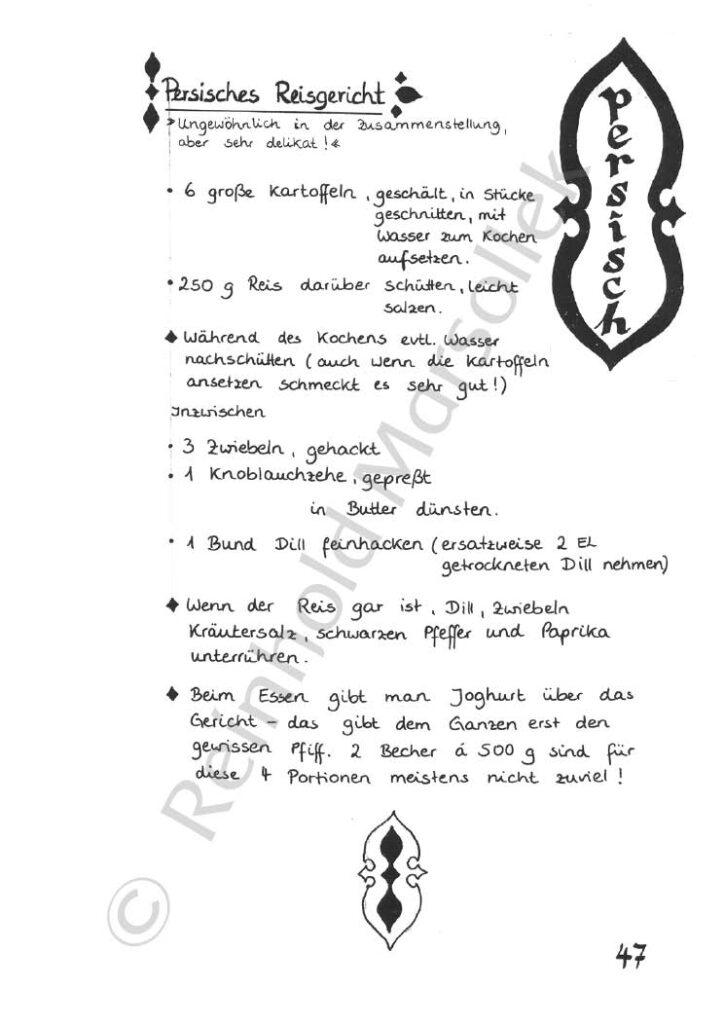 Persisches Reisgericht
>Ungewöhnlich in der Zusammenstellung,
aber sehr delikat!<
• 6 große Kartoffeln, geschält, in Stücke
geschnitten, mit
Wasser zum Kochen
aufsetzen.
• 250 g Reis darüber schütten, leicht
salzen.
◆ Während des Kochens evtl. Wasser
nachschütten (auch wenn die Kartoffeln
ansetzen schmeckt es sehr gut!)
Inzwischen
• 3 Zwiebeln, gehackt
• 1 Knoblauchzehe, gepreßt
in Butter dünsten.
• 1 Bund Dill feinhacken (ersatzweise 2 EL
getrockneten Dill nehmen)
◆ Wenn der Reis gar ist, Dill, Zwiebeln
Kräutersalz, schwarzen Pfeffer und Paprika
unterrühren.
◆ Beim Essen gibt man Joghurt über das
Gericht – das gibt dem Ganzen erst den
gewissen Pfiff. 2 Becher á 500 g sind für
diese 4 Portionen meistens nicht zuviel!
persisch
47
© Reinhold Marsollek